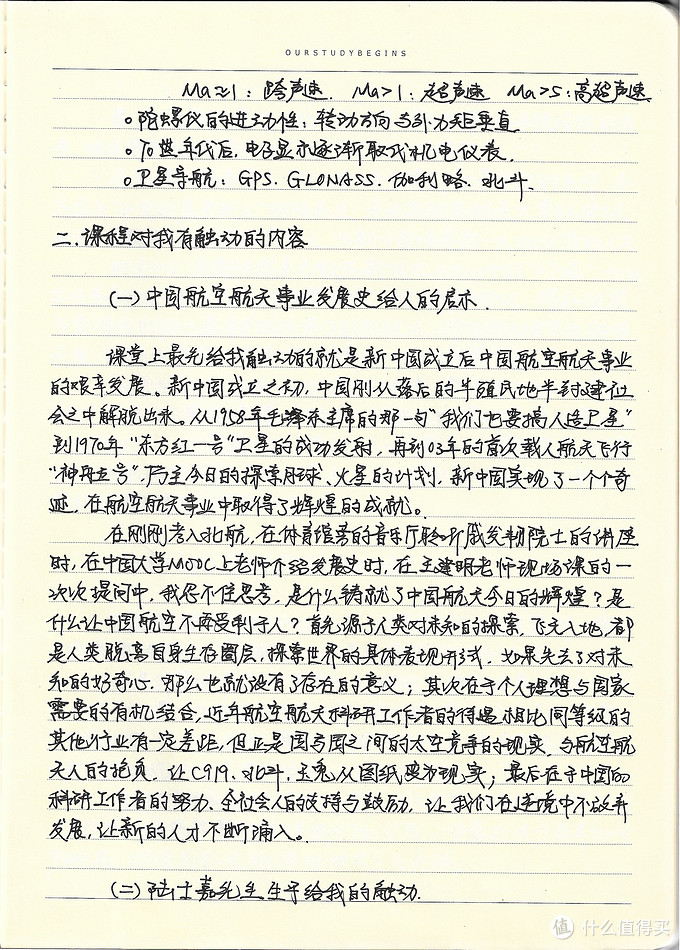 OURSTUDYBEGINS
Ma≈1：跨声速. Ma>1：超声速 Ma>5：高超声速
○陀螺仪的进动性：转动方向与外力矩垂直
○70世年代后，电子显示逐渐取代机电仪表.
○卫星导航：GPS. GLONASS. 伽利略. 北斗.
二、课程对我有触动的内容
(一)中国航空航天事业发展史给人的启示.
课堂上最先给我触动的就是新中国成立后中国航空航天事业
的艰辛发展。新中国成立之初，中国刚从落后的半殖民地半封建社
会之中解脱出来。从1958年毛泽东主席的那一句“我们也要搞人造卫星”
到1970年“东方红一号”卫星的成功发射，再到03年的首次载人航天飞行
“神舟五号”，乃至今日的探索月球、火星的计划，新中国实现了一个个奇
迹，在航空航天事业中取得了辉煌的成就。
在刚刚考入北航，在体育馆旁的音乐厅聆听戚发轫院士的讲座
时，在中国大学MOOC上老师介绍发展史时，在王建明老师现场课的一
次次提问中，我忍不住思考，是什么铸就了中国航天今日的辉煌？是
什么让中国航空不再受制于人？首先源于人类对未知的探索，飞天入地，都
是人类脱离自身生存圈层，探索世界的具体表现形式，如果失去了对未
知的好奇心，那么也就没有了存在的意义；其次在于个人理想与国家
需要的有机结合，近年航空航天科研工作者的待遇相比同等级的
其他行业有一定差距，但正是国与国之间的太空竞争的现实，与航空航
天人的抱负，让C919、北斗、玉兔从图纸变为现实；最后在于中国的
科研工作者的努力、全社会人的支持与鼓励，让我们在逆境中不放弃
发展，让新的人才不断涌入。
(二)陆士嘉先生生平给我的触动.
值 什么值得买